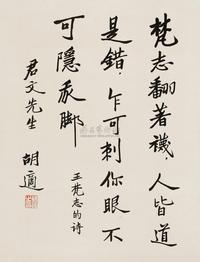 梵志翻著襪，人皆道
是錯，乍可刺你眼不
可隱我脚
王梵志的诗
君文先生
胡適